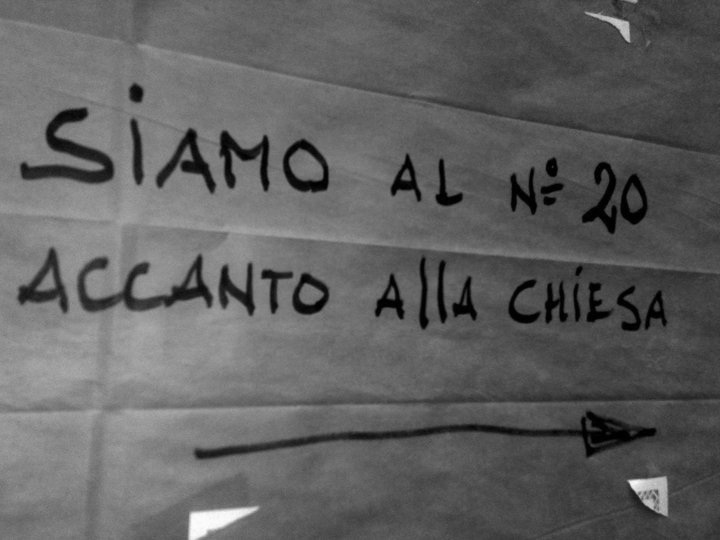 SiAMO AL Nº 20
ACCANTO AllA CHiESA